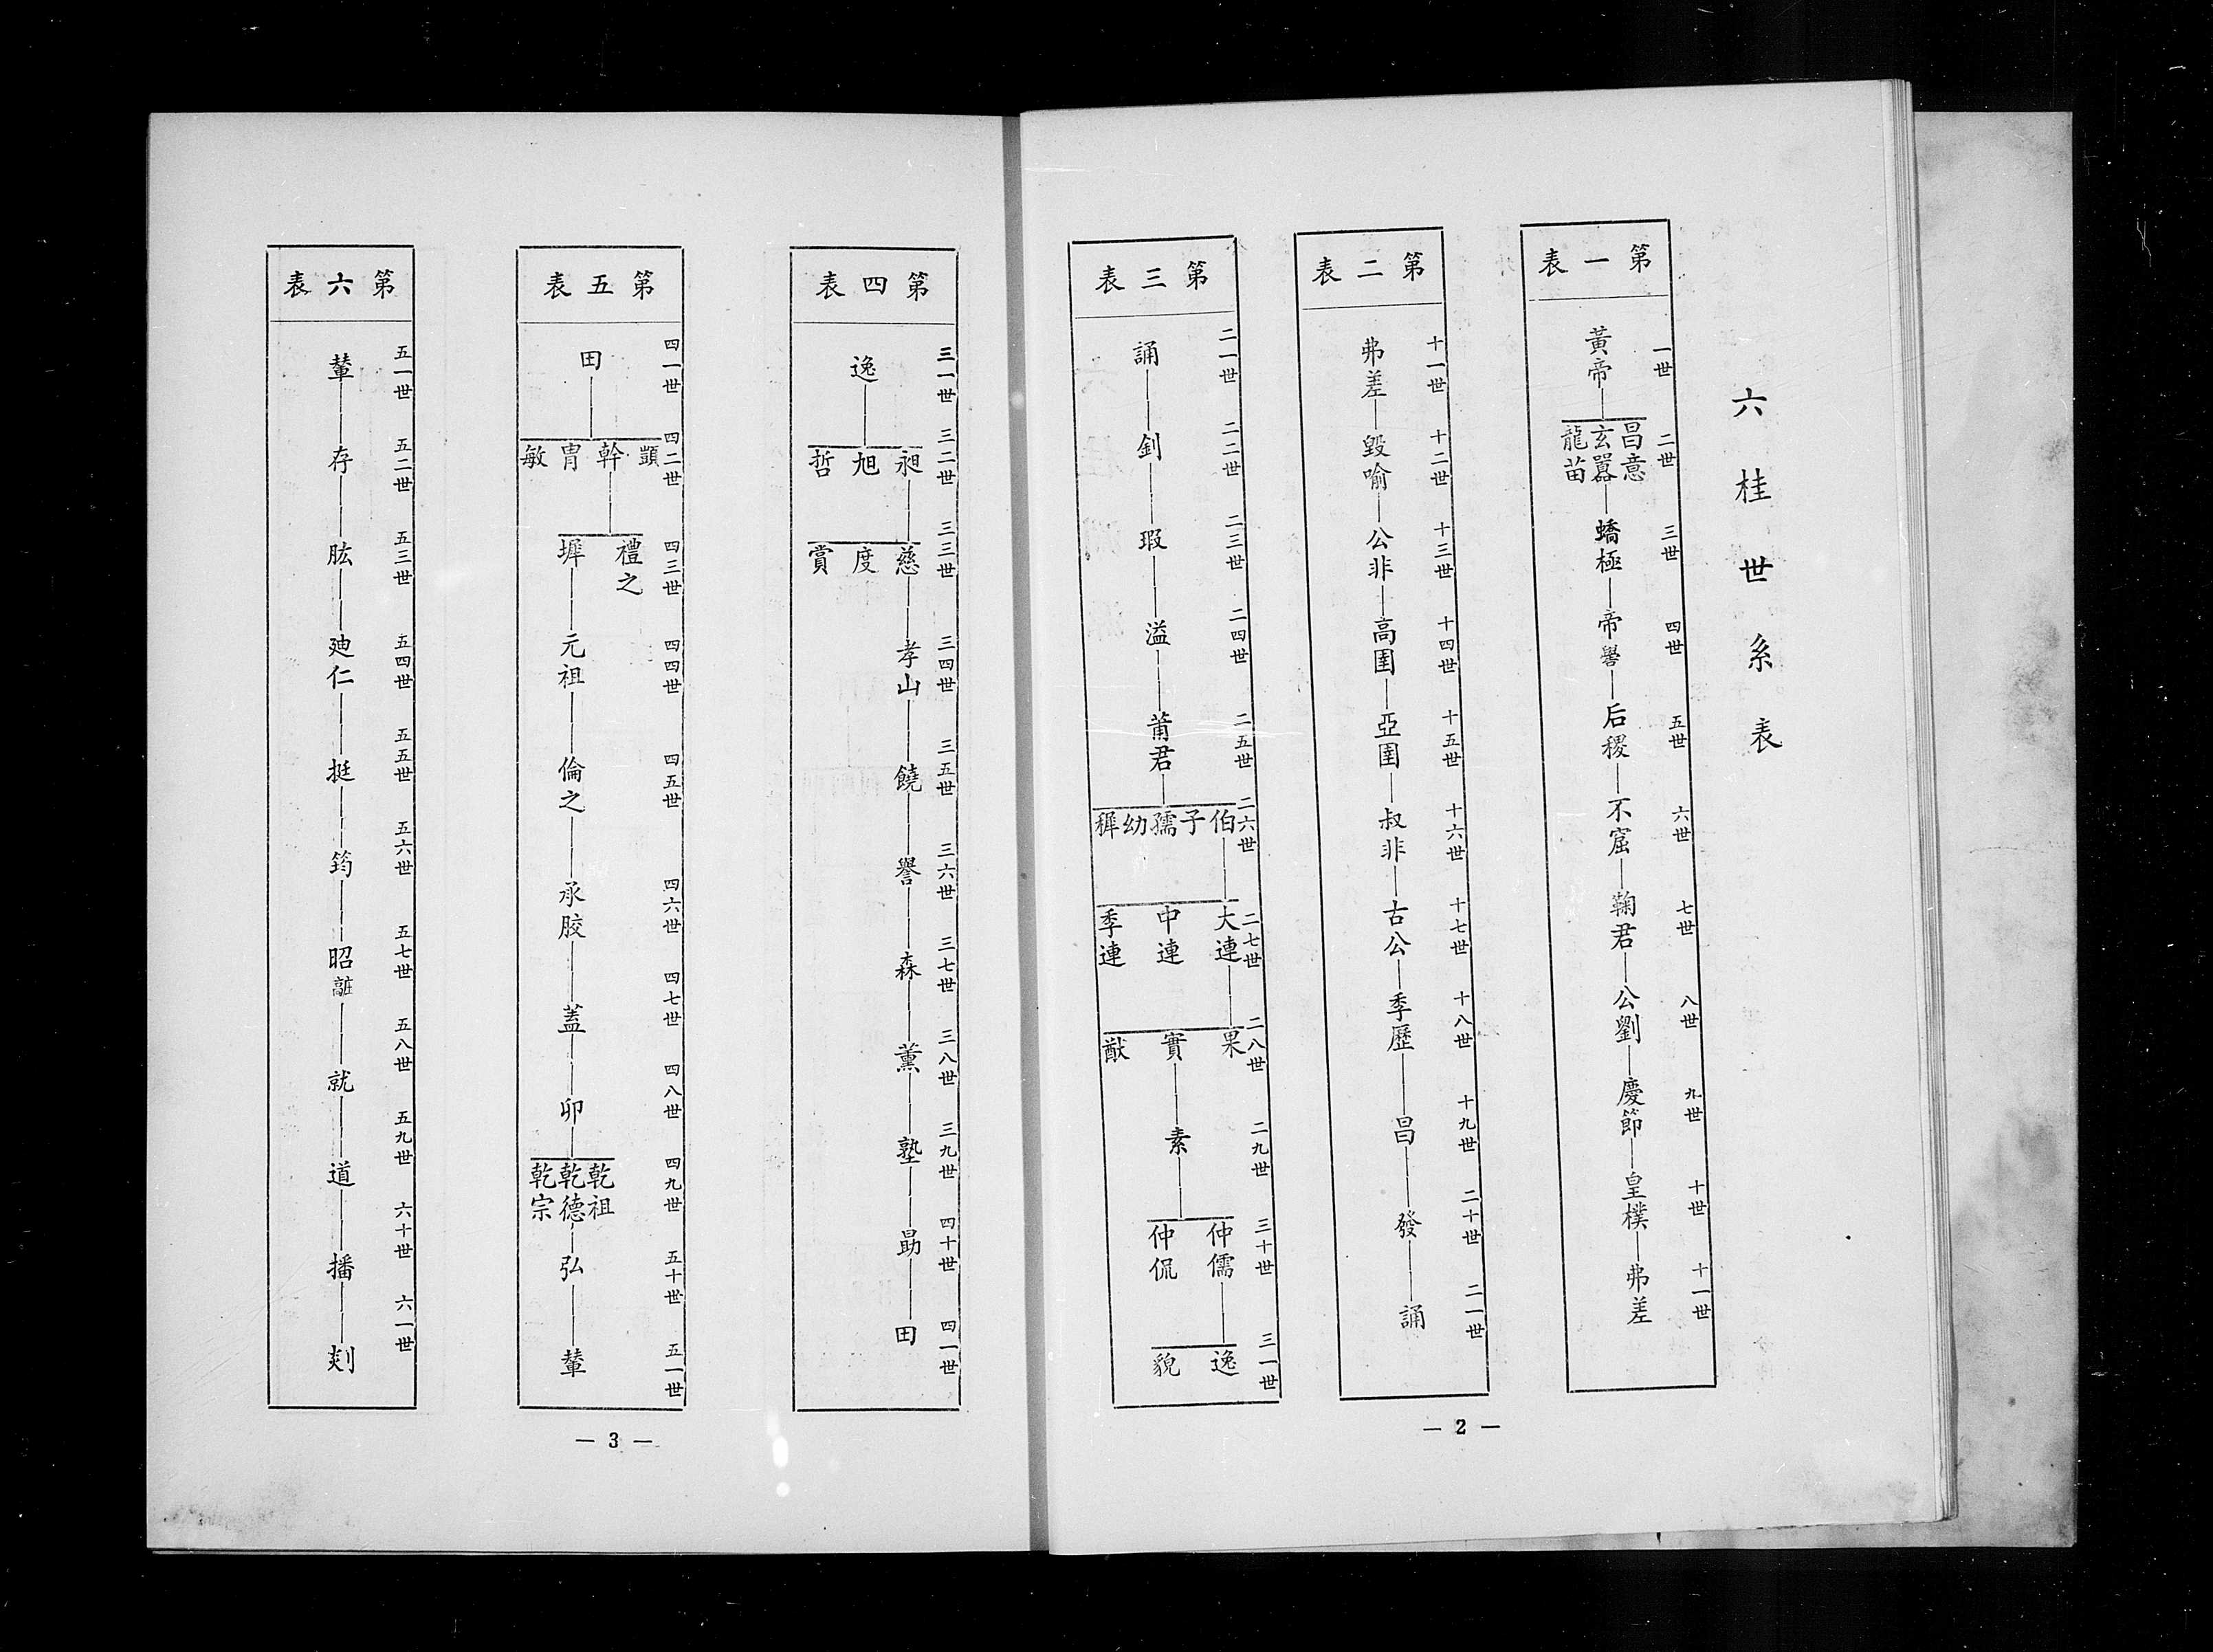 六桂世系表
第一表
一世 二世 三世 四世 五世 六世 七世 八世 九世 十世 十一世
黃帝
昌意 玄囂 龍苗
蟜極
帝嚳
后稷
不窟
鞠君
公劉
慶節
皇樸
弗差
第二表
十一世 十二世 十三世 十四世 十五世 十六世 十七世 十八世 十九世 二十世 二一世
弗差
毀喻
公非
高圉
亞圉
叔非
古公
季歷
昌
發
誦
第三表
二一世 二二世 二三世 二四世 二五世 二六世 二七世 二八世 二九世 三十世 三一世
誦
釗
瑕
溢
莆君
伯 子 孺 幼 穉
大連 中連 季連
果 實 猷
素
仲儒 仲侃
逸 貌
— 2 —
第四表
三一世 三二世 三三世 三四世 三五世 三六世 三七世 三八世 三九世 四十世 四一世
逸
昶 旭 哲
慈 度 賞
孝山
饒
譽
森
薰
塾
勗
田
第五表
四一世 四二世 四三世 四四世 四五世 四六世 四七世 四八世 四九世 五十世 五一世
田
顗 幹 胄 敏
禮之 墀
元祖
倫之
承胶
蓋
卯
乾祖 乾德 乾宗
弘
輦
第六表
五一世 五二世 五三世 五四世 五五世 五六世 五七世 五八世 五九世 六十世 六一世
輦
存
肱
廸仁
挺
筠
昭
就
道
播
剡
— 3 —